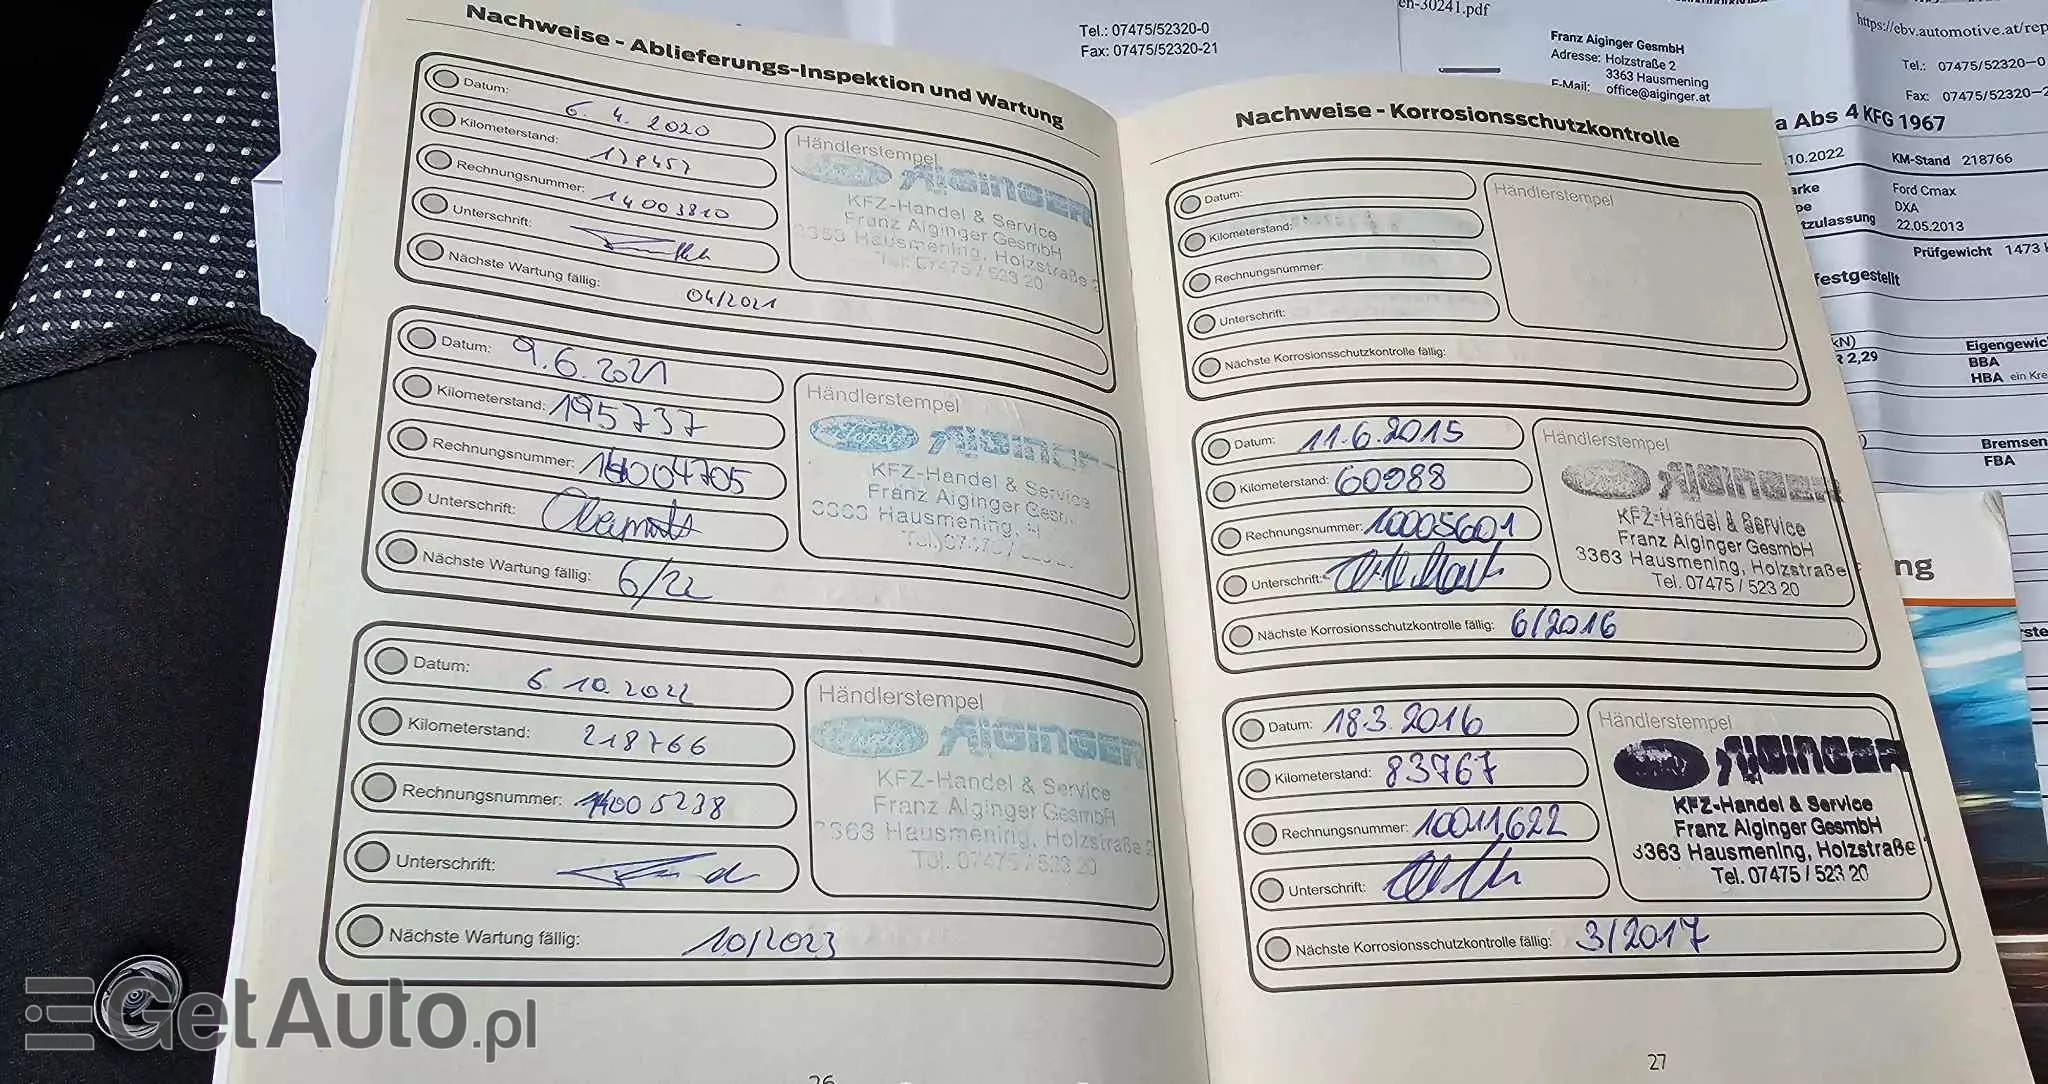 Nachweise - Ablieferungs-Inspektion und Wartung
Datum: 6. 4. 2020
Kilometerstand: 178457
Rechnungsnummer: 14003810
Unterschrift:
Nächste Wartung fällig: 04/2021
Händlerstempel
Ford AIGINGER
KFZ-Handel & Service
Franz Aiginger GesmbH
3363 Hausmening, Holzstraße 2
Tel. 07475 / 523 20
Datum: 9.6.2021
Kilometerstand: 195737
Rechnungsnummer: 14004705
Unterschrift:
Nächste Wartung fällig: 6/22
Händlerstempel
Ford AIGINGER
KFZ-Handel & Service
Franz Aiginger Gesm
3363 Hausmening, H
Tel. 07475 / 523 20
Datum: 6 10. 2022
Kilometerstand: 218766
Rechnungsnummer: 14005238
Unterschrift:
Nächste Wartung fällig: 10/2023
Händlerstempel
AIGINGER
KFZ-Handel & Service
Franz Aiginger GesmbH
3363 Hausmening, Holzstraße 2
Tel. 07475 / 523 20
26
Nachweise - Korrosionsschutzkontrolle
Datum:
Kilometerstand:
Rechnungsnummer:
Unterschrift:
Nächste Korrosionsschutzkontrolle fällig:
Händlerstempel
Datum: 11.6.2015
Kilometerstand: 60988
Rechnungsnummer: 10005601
Unterschrift:
Nächste Korrosionsschutzkontrolle fällig: 6/2016
Händlerstempel
AIGINGER
KFZ-Handel & Service
Franz Aiginger GesmbH
3363 Hausmening, Holzstraße
Tel. 07475 / 523 20
Datum: 18.3.2016
Kilometerstand: 83767
Rechnungsnummer: 10011622
Unterschrift:
Nächste Korrosionsschutzkontrolle fällig: 3/2017
Händlerstempel
AIGINGER
KFZ-Handel & Service
Franz Aiginger GesmbH
3363 Hausmening, Holzstraße
Tel. 07475 / 523 20
27
Tel.: 07475/52320-0
Fax: 07475/52320-21
en-30241.pdf
Franz Aiginger GesmbH
Adresse: Holzstraße 2
3363 Hausmening
E-Mail: office@aiginger.at
https://ebv.automotive.at/rep
Tel.: 07475/52320-0
Fax: 07475/52320-2
a Abs 4 KFG 1967
.10.2022 KM-Stand 218766
arke Ford Cmax
pe DXA
tzulassung 22.05.2013
Prüfgewicht 1473
festgestellt
kN) Eigengewic
R 2,29 BBA
HBA ein Kre
Bremsen
FBA
ng
GetAuto.pl